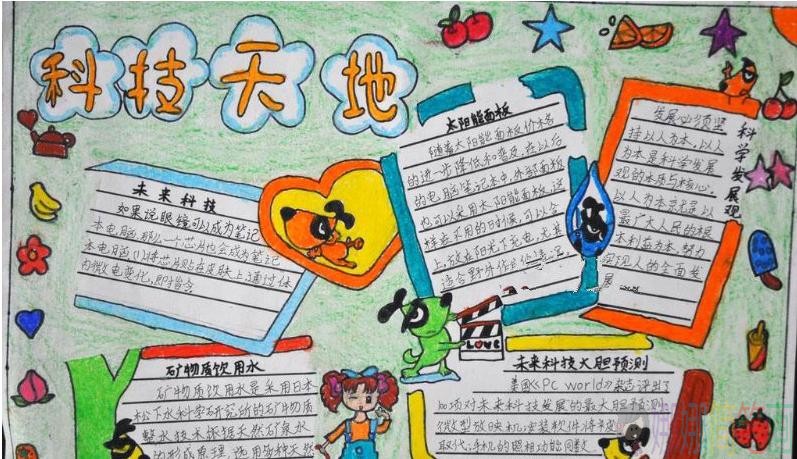 科技天地
未来科技
如果说眼镜可以成为笔记
本电脑,那么一个芯片也会成为笔记
本电脑,将芯片贴在皮肤上,通过体
内微电变化,即指令
太阳能面板
随着太阳能面板价格
的进一步降低和普及,在以后
的电脑笔记本中,外部面板
也可以采用太阳能面板,这
样在不用的时候,可以合
上,放在阳光下充电,尤其
适合野外作业情况,
科学发展观
发展必须坚
持以人为本,以人
为本是科学发展
观的本质与核心。
以人为本就是以
最广大人民的根
本利益为本,努力
实现人的全面发
展
矿物质饮用水
矿物质饮用水是采用日本
松下水科学研究所的矿物质
整水技术依据天然矿泉水
的形成原理,选用多种天然
LOVE
未来科技大胆预测
美国《PC World》杂志评出了
100项对未来科技发展的最大胆预测
微型放映机;安装软件将
取代;手机的照相功能